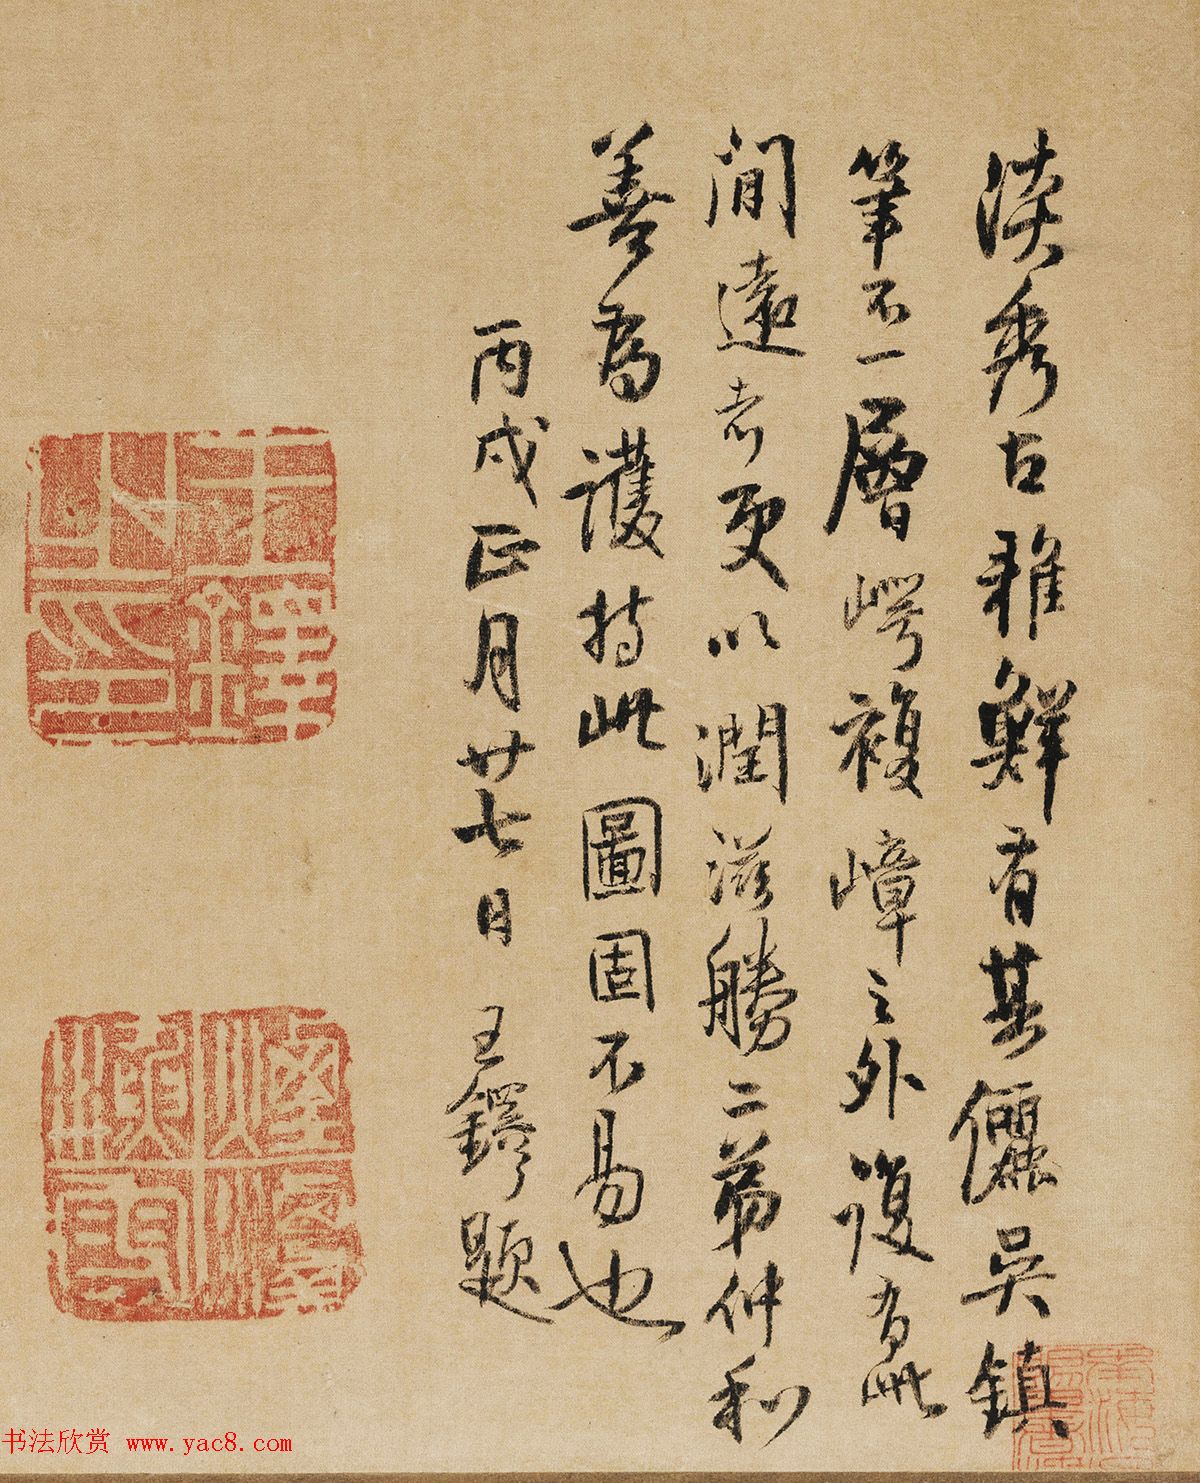 淡秀古雅鮮有其儷吳鎮
筆不一層崿複嶂之外復有此
閒遠者更以潤滋勝二弟仲和
善為護持此圖固不易也
丙戌正月廿七日 王鐸題
王鐸之印
煙潭漁叟
书法欣赏 www.yac8.com